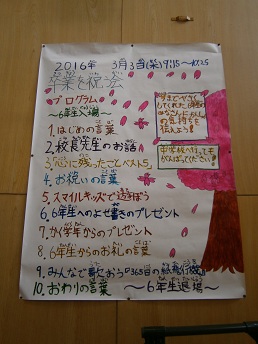 2016年 3月3日(木)9:15~10:25
卒業を祝う会
プログラム
~6年生入場~
1.はじめの言葉
2.校長先生のお話
3.心に残ったことベスト5
4.お祝いの言葉
5.スマイルキッズで遊ぼう
6.6年生へのよせ書きのプレゼント
7.かく学年からのプレゼント
8.6年生からのお礼の言葉
9.みんなで歌おう『365日の紙飛行機』
10.おわりの言葉
~6年生退場~
今までやさしく
してくれた、6年生の
の気持ちを
伝えよう!
中学校へ行っても
がんばってください!